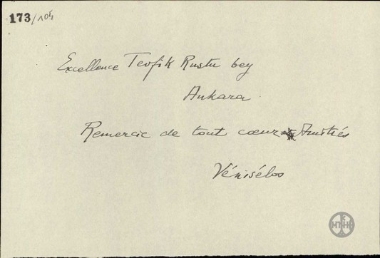 173/104
Excellence Tevfik Rustu bey
Ankara
Remercie de tout cœur
Vénisélos